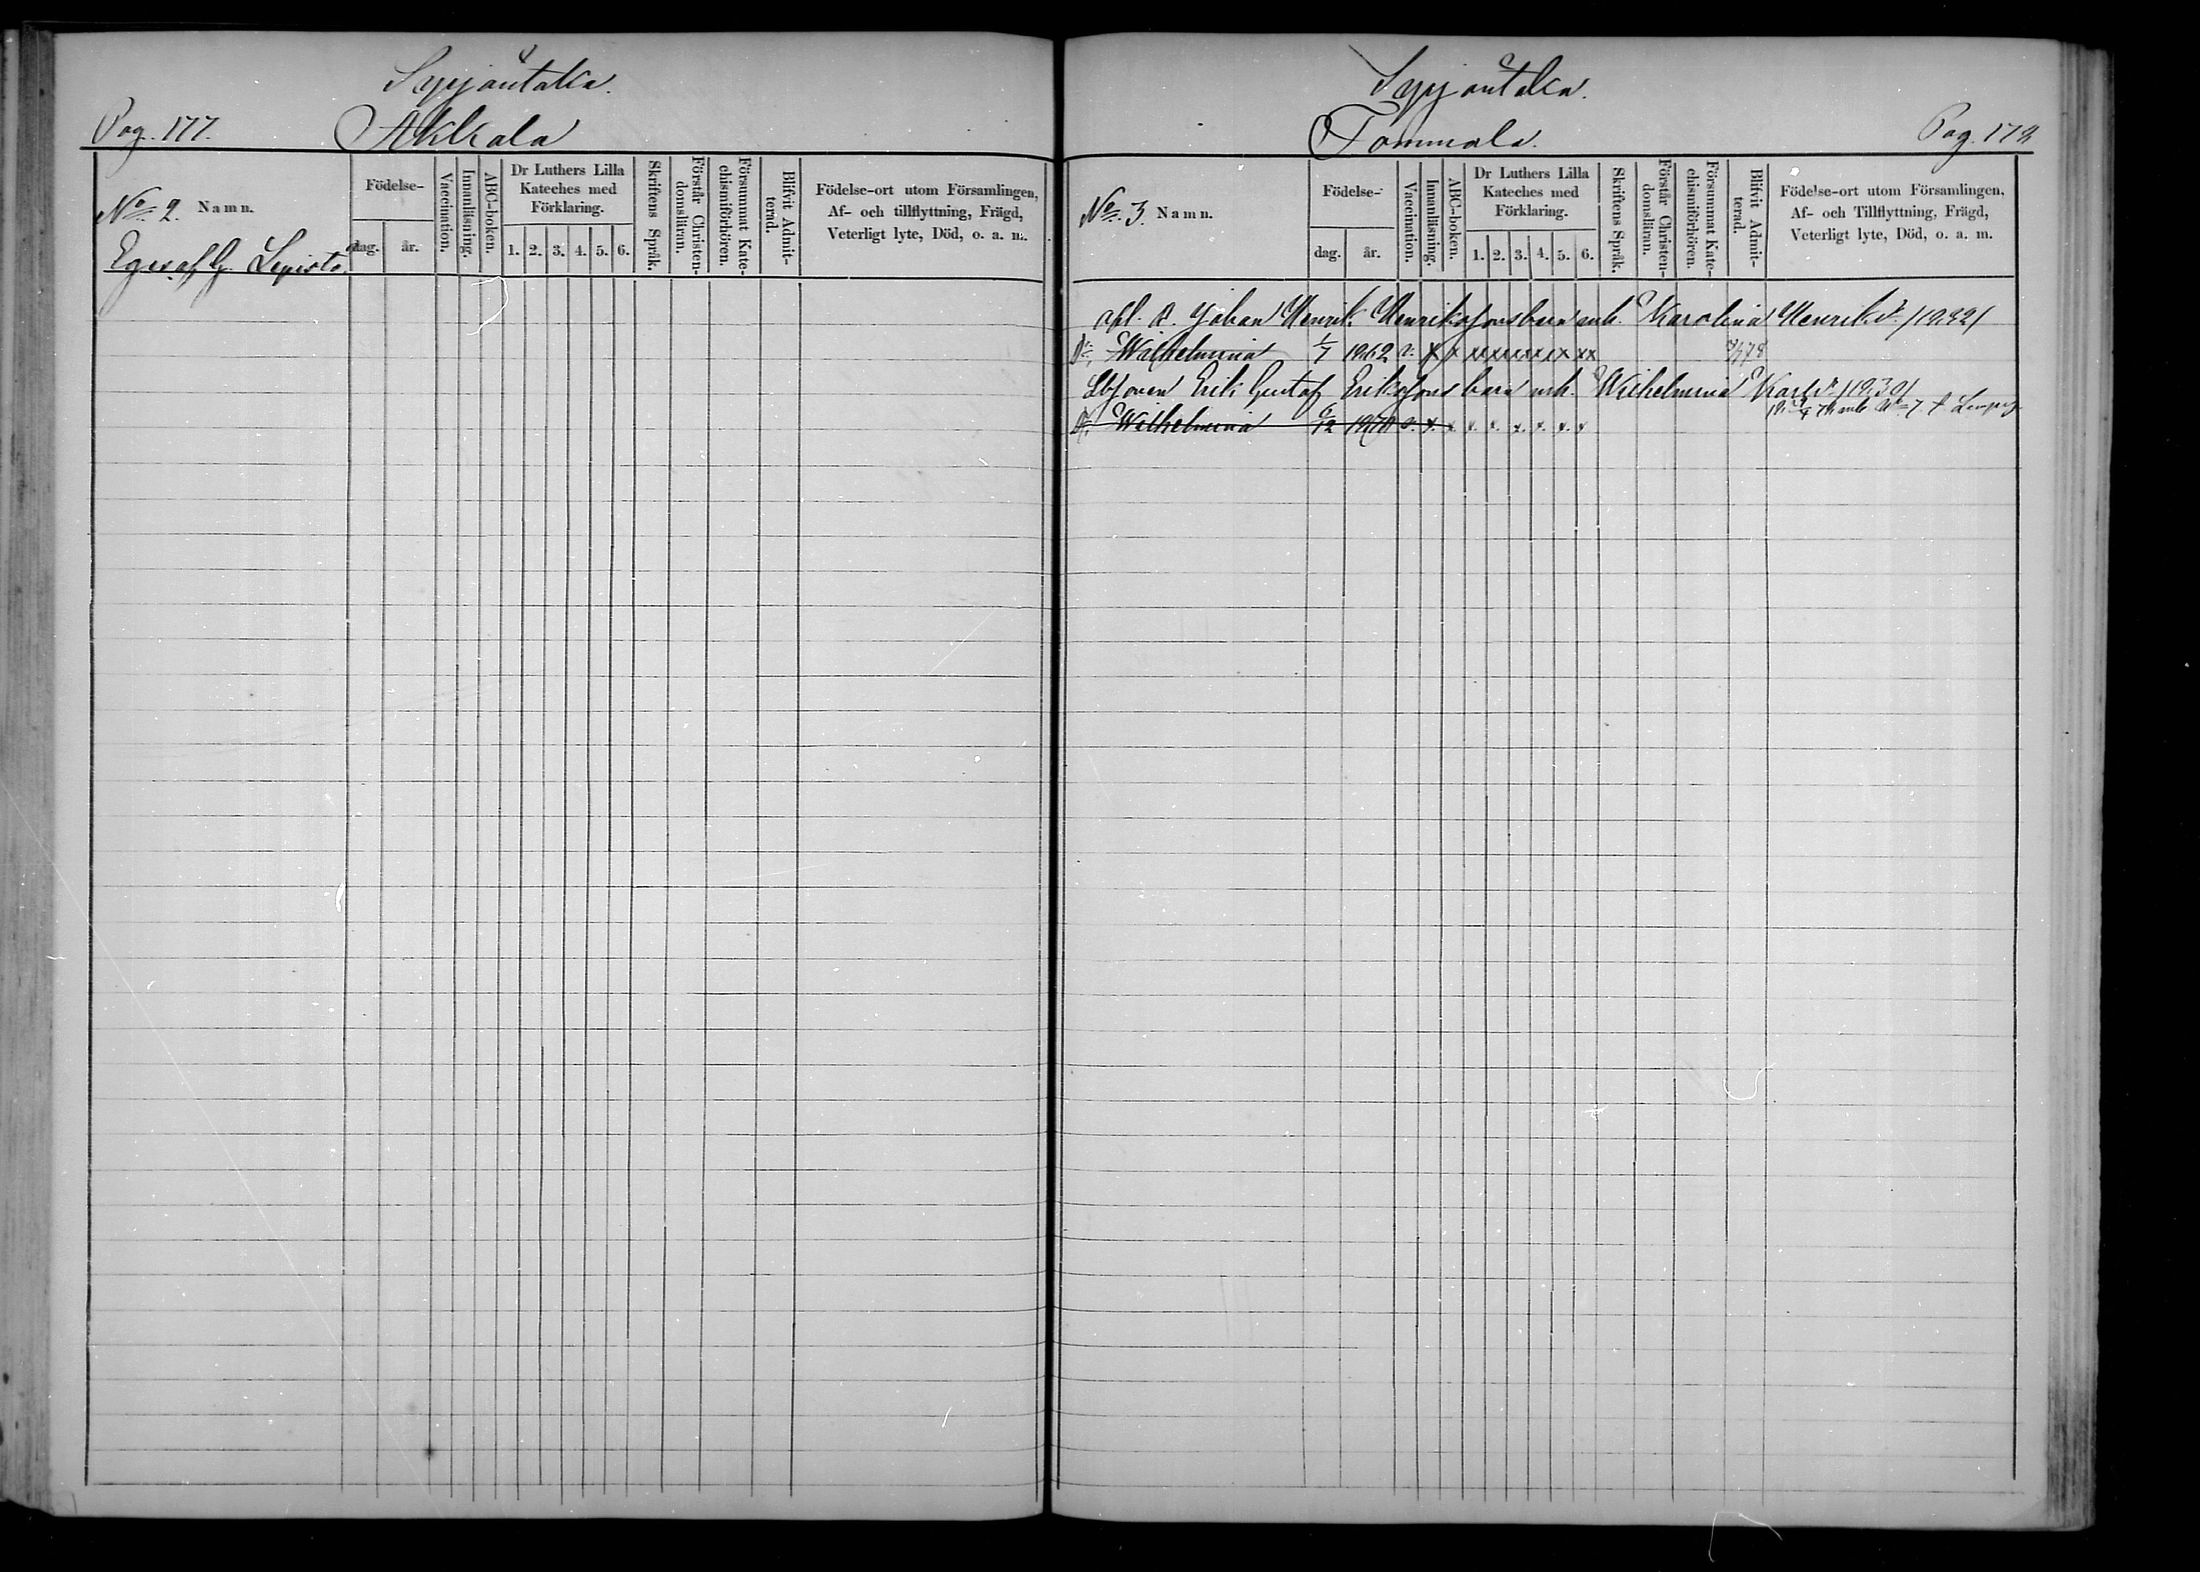 Syrjäntaka.
Pag. 177. Akkala
No 2. Namn.
Födelse-
dag. år.
Vaccination.
Innanläsning.
ABC-boken.
Dr Luthers Lilla
Kateches med
Förklaring.
1. 2. 3. 4. 5. 6.
Skriftens Språk.
Förstår Christen-
domsläran.
Försummat Kate-
chismiförhören.
Blifvit Admit-
terad.
Födelse-ort utom Församlingen,
Af- och tillflyttning, Frägd,
Veterligt lyte, Död, o. a. m.
Eges af G. Lepistö
Syrjäntaka.
Tommola. Pag. 178
No 3. Namn.
Födelse-
dag. år.
Vaccination.
Innanläsning.
ABC-boken.
Dr Luthers Lilla
Kateches med
Förklaring.
1. 2. 3. 4. 5. 6.
Skriftens Språk.
Förstår Christen-
domsläran.
Försummat Kate-
chismiförhören.
Blifvit Admit-
terad.
Födelse-ort utom Församlingen,
Af- och Tillflyttning, Frägd,
Veterligt lyte, Död, o. a. m.
Johan Henrik Henrikssons barn mh. Karolina Henriksdr
Dr Wilhelmina 1/7 1862 v. x x xxxxxxxx xx
Erik Gustaf Erikssons barn mh. Wilhelmina Karlsdr
Dr Wilhelmina 6/12 v. x. x x. x. x. x. x. x